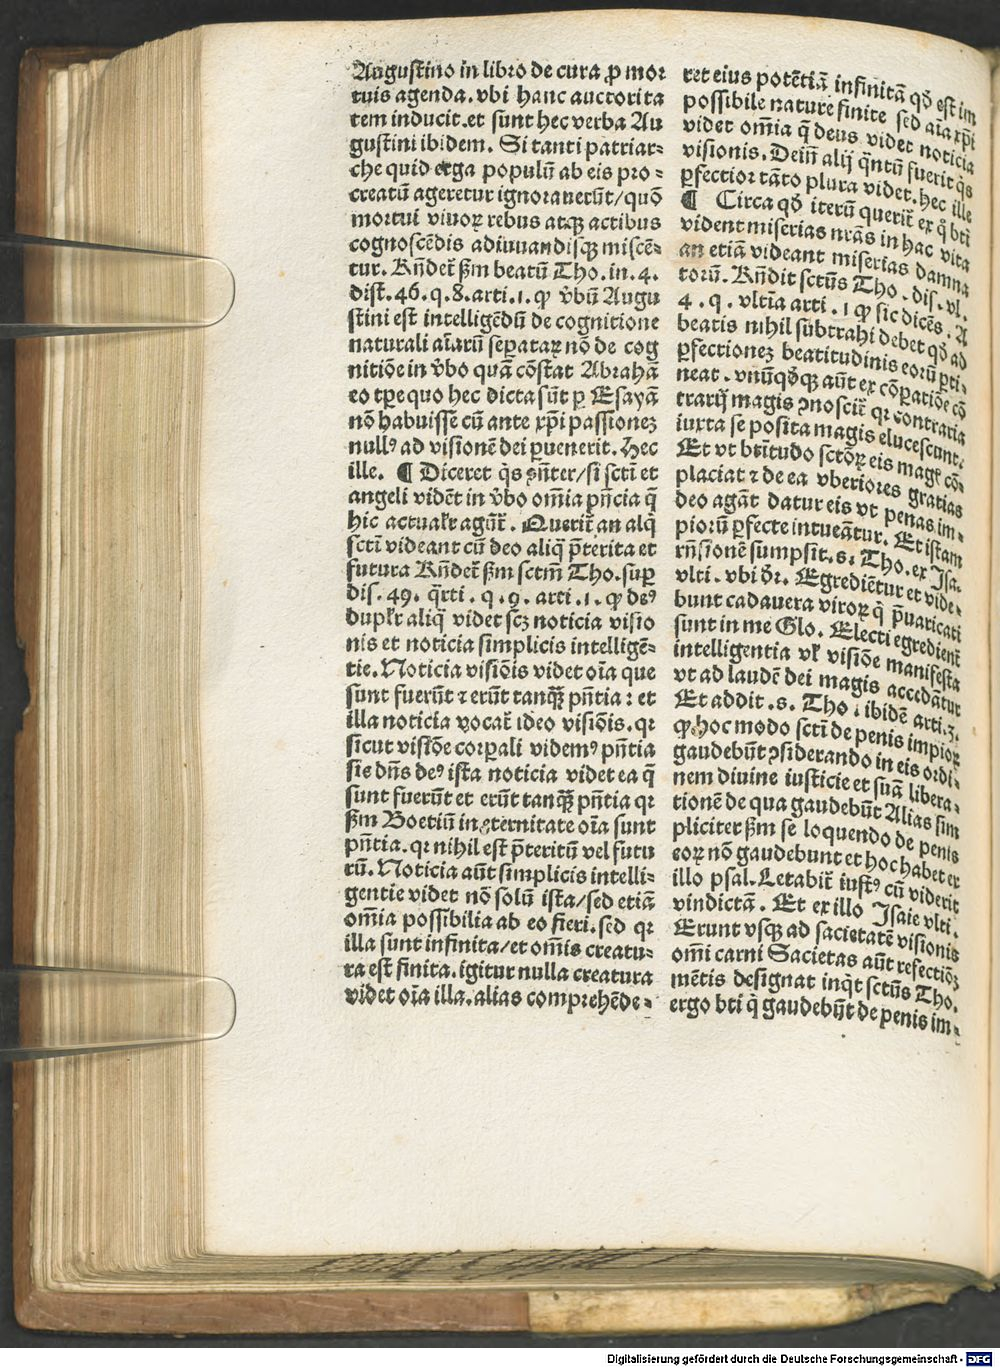 Augustino in libro de cura ꝓ mor
tuis agenda. vbi hanc auctorita
tem inducit.et sunt hec verba Au
gustini ibidem. Si tanti patriar⸗
che quid erga populū ab eis pro⸗
creatū ageretur ignorauerūt/quō
mortui viuoꝝ rebus atqꝫ actibus
cognoscēdis adiuuandisqꝫ miscē⸗
tur. Rn̄det̄ ẜm beatū Tho. in. 4.
dist. 46. q. 8. arti. 1. ꝙ v̄bū Augu
stini est intelligēdū de cognitione
naturali aīarū sepatarꝝ nō de cog
nitiōe in v̄bo quā cōstat Abrahā
eo tꝑe quo hec dicta sūt ꝑ Esayā
nō habuisse cū ante xp̄i passionez
nullꝰ ad visionē dei ꝑuenerit. Hec
ille. ¶ Diceret q̄s ↄn̄ter/si sctī et
angeli vidēt in v̄bo om̄ia pn̄cia q̄
hic actualr̄ agūt̄. Querit̄ an alq̄
sctī videant cū deo aliq̄ p̄terita et
futura Rn̄det̄ ẜm sctm̄ Tho. suꝑ
dis. 49. q̄rti. q. 9. arti. 1. ꝙ deꝰ
duplr̄ aliq̄ videt scꝫ noticia visio
nis et noticia simplicis intelligē⸗
tie. Noticia visiōis videt oīa que
sunt fuerūt ⁊ erūt tanqꝫ̄ pn̄tia: et
illa noticia vocat̄ ideo visiōis. qꝛ
sicut visiōe corꝑali videmꝰ pn̄tia
sic dn̄s deꝰ ista noticia videt ea q̄
sunt fuerūt et erūt tanqꝫ̄ pn̄tia qꝛ
ẜm Boetiū in eternitate oīa sunt
pn̄tia. qꝛ nihil est p̄teritū vel futu
rū. Noticia aūt simplicis intelli⸗
gentie videt nō solū ista/sed etiā
om̄ia possibilia ab eo fieri. sed qꝛ
illa sunt infinita/et om̄is creatu⸗
ra est finita. igitur nulla creatura
videt oīa illa. alias comprehēde⸗
ret eius potētiā infinitā qd̄ est im
possibile nature finite sed aīa xp̄i
videt om̄ia q̄ deus videt noticia
visionis. Dein̄ alij q̄ntū fuerit q̄s
ꝑfectior tāto plura videt. hec ille
¶ Circa qd̄ iterū querit̄ ex q̄ bt̄i
vident miserias nr̄as in hac vita
an etiā videant miserias damna
torū. Rn̄dit sctūs Tho. dis. vl.
4. q. vltīa arti. 1 ꝙ sic dicēs. A
beatis nihil subtrahi debet qd̄ ad
ꝑfectionez beatitudinis eorū ꝑti⸗
neat. vnūqd̄qꝫ aūt ex cōꝑatiōe cō
trarij magis ↄnoscit̄ qꝛ contraria
iuxta se posita magis elucescunt.
Et vt btītudo sctōꝝ eis magꝭ cō⸗
placiat ⁊ de ea vberiores gratias
deo agāt datur eis vt penas im⸗
piorū ꝑfecte intueātur. Et istam
rn̄sionē sumpsit. s. Tho. ex Isa.
vlti. vbi dr̄. Egrediētur et vide⸗
bunt cadauera viroꝝ q̄ p̄uaricati
sunt in me Glo. Electi egredient̄
intelligentia vl̄ visiōe manifesta
vt ad laudē dei magis accedātur
Et addit. s. Tho. ibidē arti. 3.
ꝙ hoc modo sctī de penis impioꝝ
gaudebūt ↄsiderando in eis ordi⸗
nem diuine iusticie et suā libera⸗
tionē de qua gaudebūt Alias sim
pliciter ẜm se loquendo de penis
eoꝝ nō gaudebunt et hoc habet ex
illo psal. Letabit̄ iustꝰ cū viderit
vindictā. Et ex illo Isaie vlti.
Erunt vsqꝫ ad sacietatē visionis
om̄i carni Sacietas aūt refectiōꝫ
mētis designat inq̄t sctūs Tho.
ergo bt̄i q̄ gaudebūt de penis im⸗
Digitalisierung gefördert durch die Deutsche Forschungsgemeinschaft - DFG